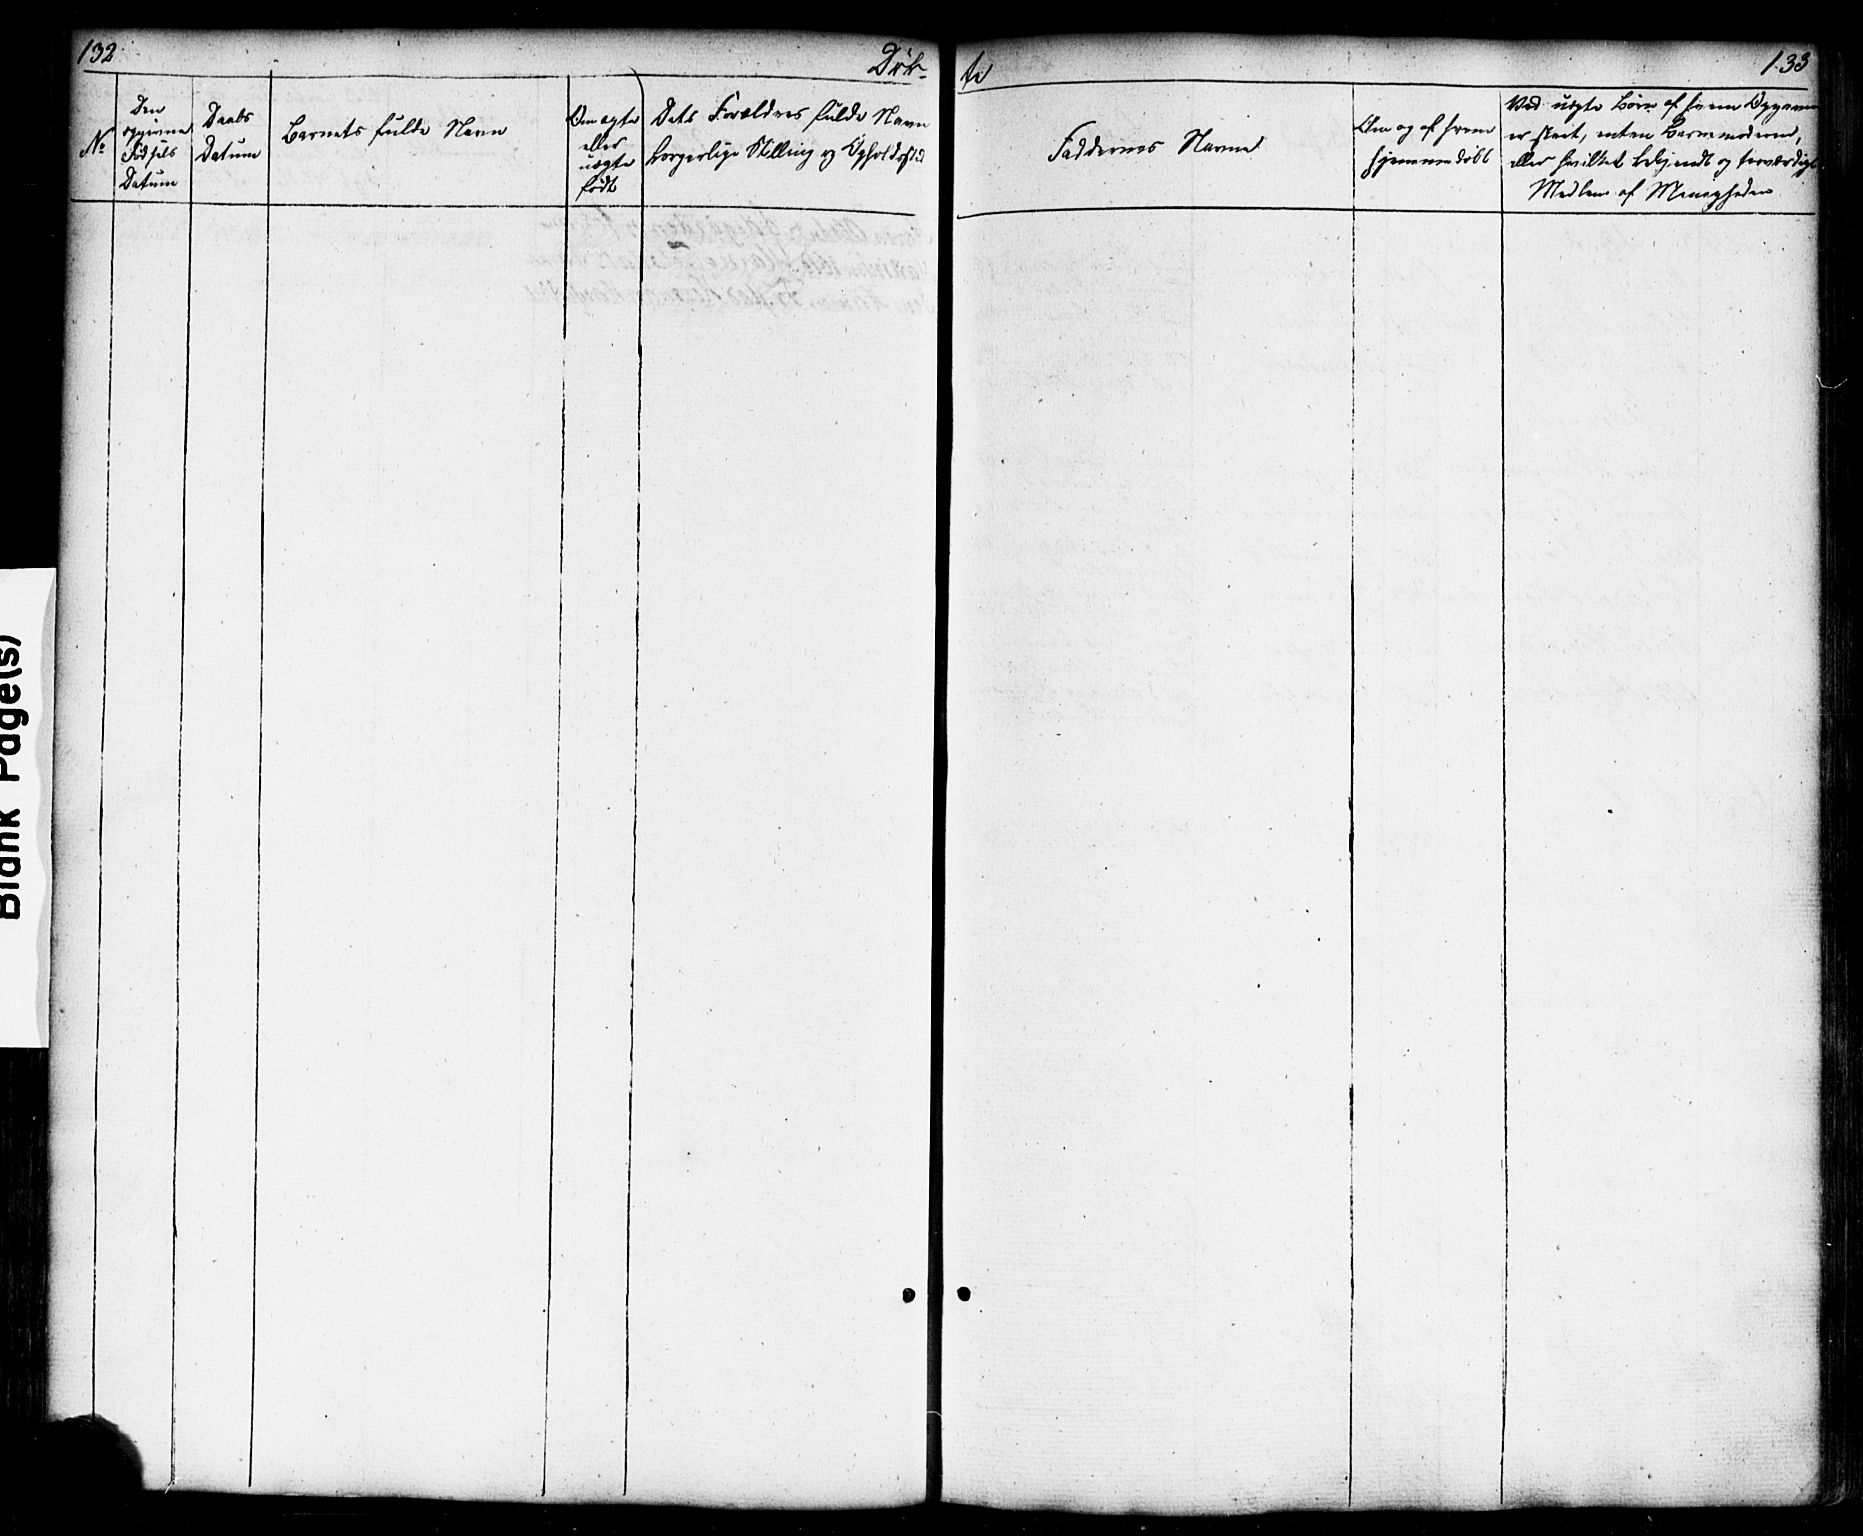 132
Døb-
te
133
№
Den
opgivne
Fødsels
Datum
Daabs
Datum
Barnets fulde Navn
Om ægte
eller
uægte
født
Dets Forældres fulde Navn
borgerlige Stilling og Opholdssted
Faddernes Navne
Om og af hvem
hjemmedøbt
Ved uægte Børn af hvem Opgaven
er skeet, enten Barnemoderen,
eller hvilket bekjendt og troværdigt
Medlem af Menigheden
Blank Page(s)